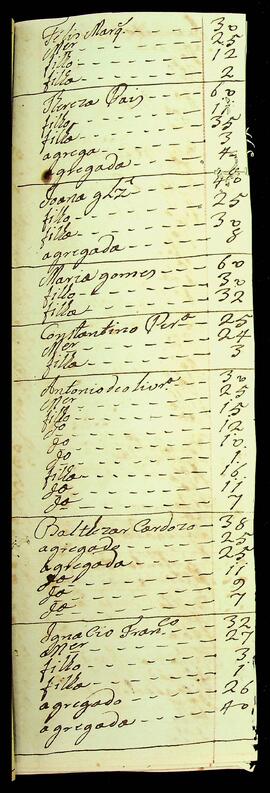 Felis Marqs — 30
Mer — 25
fillo — 12
filla — 2
Thereza Pais — 60
fillo — 11
filla — 35
filla — 3
agrega — 4
agregada
Joana glz — 40
fillo — 25
filla — 30
agregada — 8
Maria gomes — 60
fillo — 30
filla — 32
Constantino Pera — 25
Mer — 24
filla — 3
Antonio de olivra — 30
Mer — 25
fillo — 15
do — 12
do — 10
do — 1
filla — 16
da — 11
da — 7
Balthezar Cardozo — 38
agregado — 25
agregada — 25
da — 11
da — 9
da — 7
Ignacio Franco — 32
Mer — 27
fillo — 3
filla — 1
agregado — 26
agregada — 40